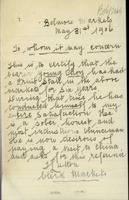 Belmore Markets
May 31st 1906
To whom it may concern
This is to certify that the
bearer Young Choy has had
a Fruit Stall in the above
markets for six years
During that time he has
conducted himself to my
entire Satisfaction He
is a sober honest and
most industrious Chinaman
He is now desirous of
paying a visit to China
and asks for this reference
Clerk Markets